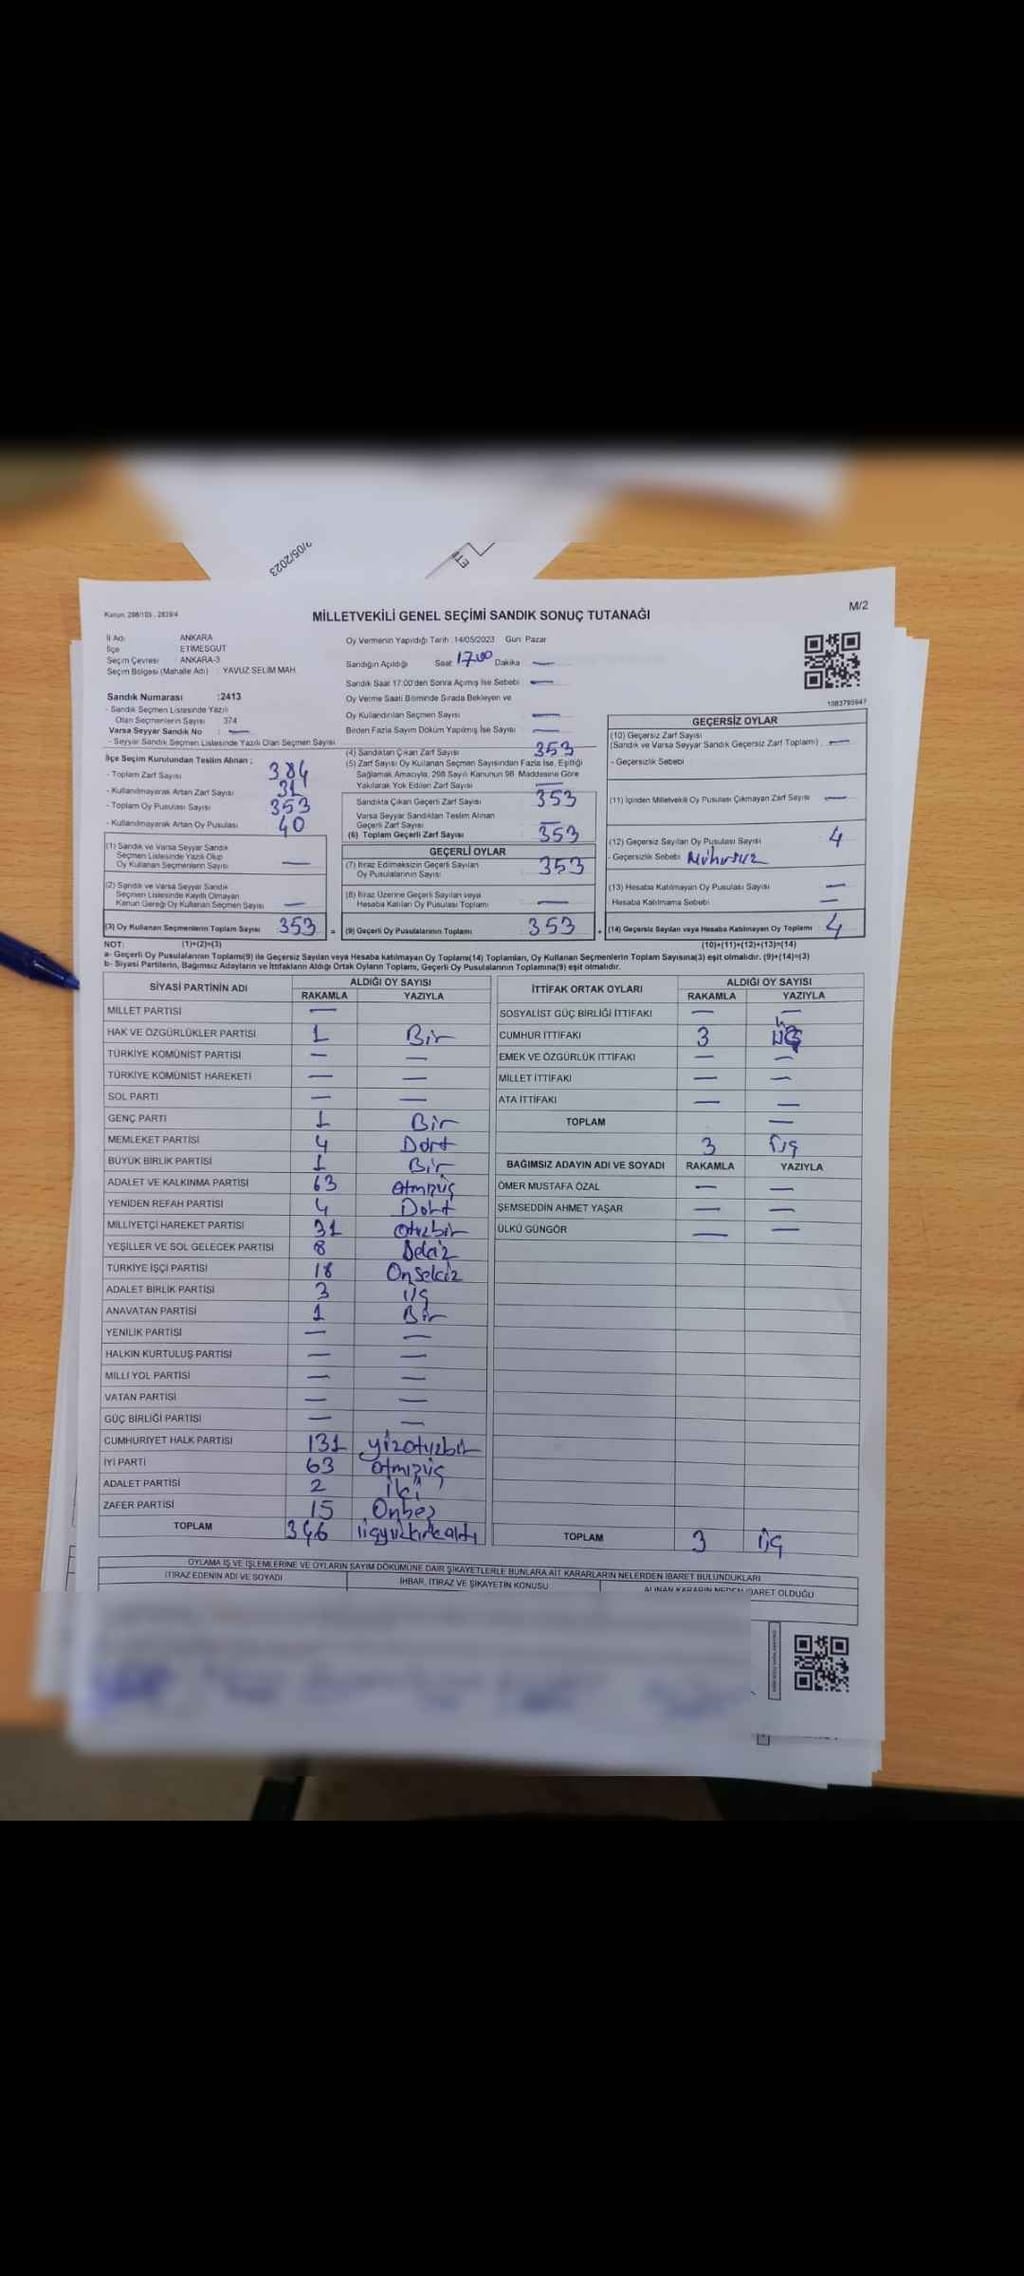 /05/2023
Kanun. 298/105 , 2839/4
MİLLETVEKİLİ GENEL SEÇİMİ SANDIK SONUÇ TUTANAĞI
M/2
İl Adı ANKARA
İlçe ETİMESGUT
Seçim Çevresi ANKARA-3
Seçim Bölgesi (Mahalle Adı) : YAVUZ SELİM MAH.
Sandık Numarası :2413
- Sandık Seçmen Listesinde Yazılı
Olan Seçmenlerin Sayısı 374
Varsa Seyyar Sandık No : —
- Seyyar Sandık Seçmen Listesinde Yazılı Olan Seçmen Sayısı
Oy Vermenin Yapıldığı Tarih :14/05/2023 Gün: Pazar
Sandığın Açıldığı Saat 17.00 Dakika —
Sandık Saat 17:00'den Sonra Açılmış İse Sebebi : —
Oy Verme Saati Bitiminde Sırada Bekleyen ve
Oy Kullandırılan Seçmen Sayısı —
Birden Fazla Sayım Döküm Yapılmış İse Sayısı : —
İlçe Seçim Kurulundan Teslim Alınan ;
- Toplam Zarf Sayısı 384
- Kullanılmayarak Artan Zarf Sayısı 31
- Toplam Oy Pusulası Sayısı 353
- Kullanılmayarak Artan Oy Pusulası 40
(1) Sandık ve Varsa Seyyar Sandık
Seçmen Listesinde Yazılı Olup
Oy Kullanan Seçmenlerin Sayısı —
(2) Sandık ve Varsa Seyyar Sandık
Seçmen Listesinde Kayıtlı Olmayan
Kanun Gereği Oy Kullanan Seçmen Sayısı —
(3) Oy Kullanan Seçmenlerin Toplam Sayısı 353 =
(4) Sandıktan Çıkan Zarf Sayısı 353
(5) Zarf Sayısı Oy Kullanan Seçmen Sayısından Fazla İse, Eşitliği
Sağlamak Amacıyla, 298 Sayılı Kanunun 98. Maddesine Göre
Yakılarak Yok Edilen Zarf Sayısı —
Sandıkta Çıkan Geçerli Zarf Sayısı 353
Varsa Seyyar Sandıktan Teslim Alınan
Geçerli Zarf Sayısı —
(6) Toplam Geçerli Zarf Sayısı 353
GEÇERLİ OYLAR
(7) İtiraz Edilmeksizin Geçerli Sayılan
Oy Pusulalarının Sayısı 353
(8) İtiraz Üzerine Geçerli Sayılan veya
Hesaba Katılan Oy Pusulası Toplamı —
(9) Geçerli Oy Pusulalarının Toplamı 353 +
GEÇERSİZ OYLAR
(10) Geçersiz Zarf Sayısı
(Sandık ve Varsa Seyyar Sandık Geçersiz Zarf Toplamı) —
- Geçersizlik Sebebi
(11) İçinden Milletvekili Oy Pusulası Çıkmayan Zarf Sayısı —
(12) Geçersiz Sayılan Oy Pusulası Sayısı 4
- Geçersizlik Sebebi Mühürsüz
(13) Hesaba Katılmayan Oy Pusulası Sayısı —
Hesaba Katılmama Sebebi —
(14) Geçersiz Sayılan veya Hesaba Katılmayan Oy Toplamı 4
NOT: (1)+(2)=(3) (10)+(11)+(12)+(13)=(14)
a- Geçerli Oy Pusulalarının Toplamı(9) ile Geçersiz Sayılan veya Hesaba katılmayan Oy Toplamı(14) Toplamları, Oy Kullanan Seçmenlerin Toplam Sayısına(3) eşit olmalıdır. (9)+(14)=(3)
b- Siyasi Partilerin, Bağımsız Adayların ve İttifakların Aldığı Ortak Oyların Toplamı, Geçerli Oy Pusulalarının Toplamına(9) eşit olmalıdır.
SİYASİ PARTİNİN ADI ALDIĞI OY SAYISI
RAKAMLA YAZIYLA
MİLLET PARTİSİ —
HAK VE ÖZGÜRLÜKLER PARTİSİ 1 Bir
TÜRKİYE KOMÜNİST PARTİSİ — —
TÜRKİYE KOMÜNİST HAREKETİ — —
SOL PARTİ — —
GENÇ PARTİ 1 Bir
MEMLEKET PARTİSİ 4 Dört
BÜYÜK BİRLİK PARTİSİ 1 Bir
ADALET VE KALKINMA PARTİSİ 63 Atmışüç
YENİDEN REFAH PARTİSİ 4 Dört
MİLLİYETÇİ HAREKET PARTİSİ 31 Otuzbir
YEŞİLLER VE SOL GELECEK PARTİSİ 8 Sekiz
TÜRKİYE İŞÇİ PARTİSİ 18 Onsekiz
ADALET BİRLİK PARTİSİ 3 Üç
ANAVATAN PARTİSİ 1 Bir
YENİLİK PARTİSİ — —
HALKIN KURTULUŞ PARTİSİ — —
MİLLİ YOL PARTİSİ — —
VATAN PARTİSİ — —
GÜÇ BİRLİĞİ PARTİSİ — —
CUMHURİYET HALK PARTİSİ 131 yüzotuzbir
İYİ PARTİ 63 Atmışüç
ADALET PARTİSİ 2 İki
ZAFER PARTİSİ 15 Onbeş
TOPLAM 346 üçyüzkırkaltı
İTTİFAK ORTAK OYLARI ALDIĞI OY SAYISI
RAKAMLA YAZIYLA
SOSYALİST GÜÇ BİRLİĞİ İTTİFAKI — —
CUMHUR İTTİFAKI 3 üç
EMEK VE ÖZGÜRLÜK İTTİFAKI — —
MİLLET İTTİFAKI — —
ATA İTTİFAKI — —
TOPLAM —
3 Üç
BAĞIMSIZ ADAYIN ADI VE SOYADI RAKAMLA YAZIYLA
ÖMER MUSTAFA ÖZAL — —
ŞEMSEDDİN AHMET YAŞAR — —
ÜLKÜ GÜNGÖR — —
TOPLAM 3 üç
OYLAMA İŞ VE İŞLEMLERİNE VE OYLARIN SAYIM DÖKÜMÜNE DAİR ŞİKAYETLERLE BUNLARA AİT KARARLARIN NELERDEN İBARET BULUNDUKLARI
İTİRAZ EDENİN ADI VE SOYADI İHBAR, İTİRAZ VE ŞİKAYETİN KONUSU ALINAN KARARIN NEDEN İBARET OLDUĞU